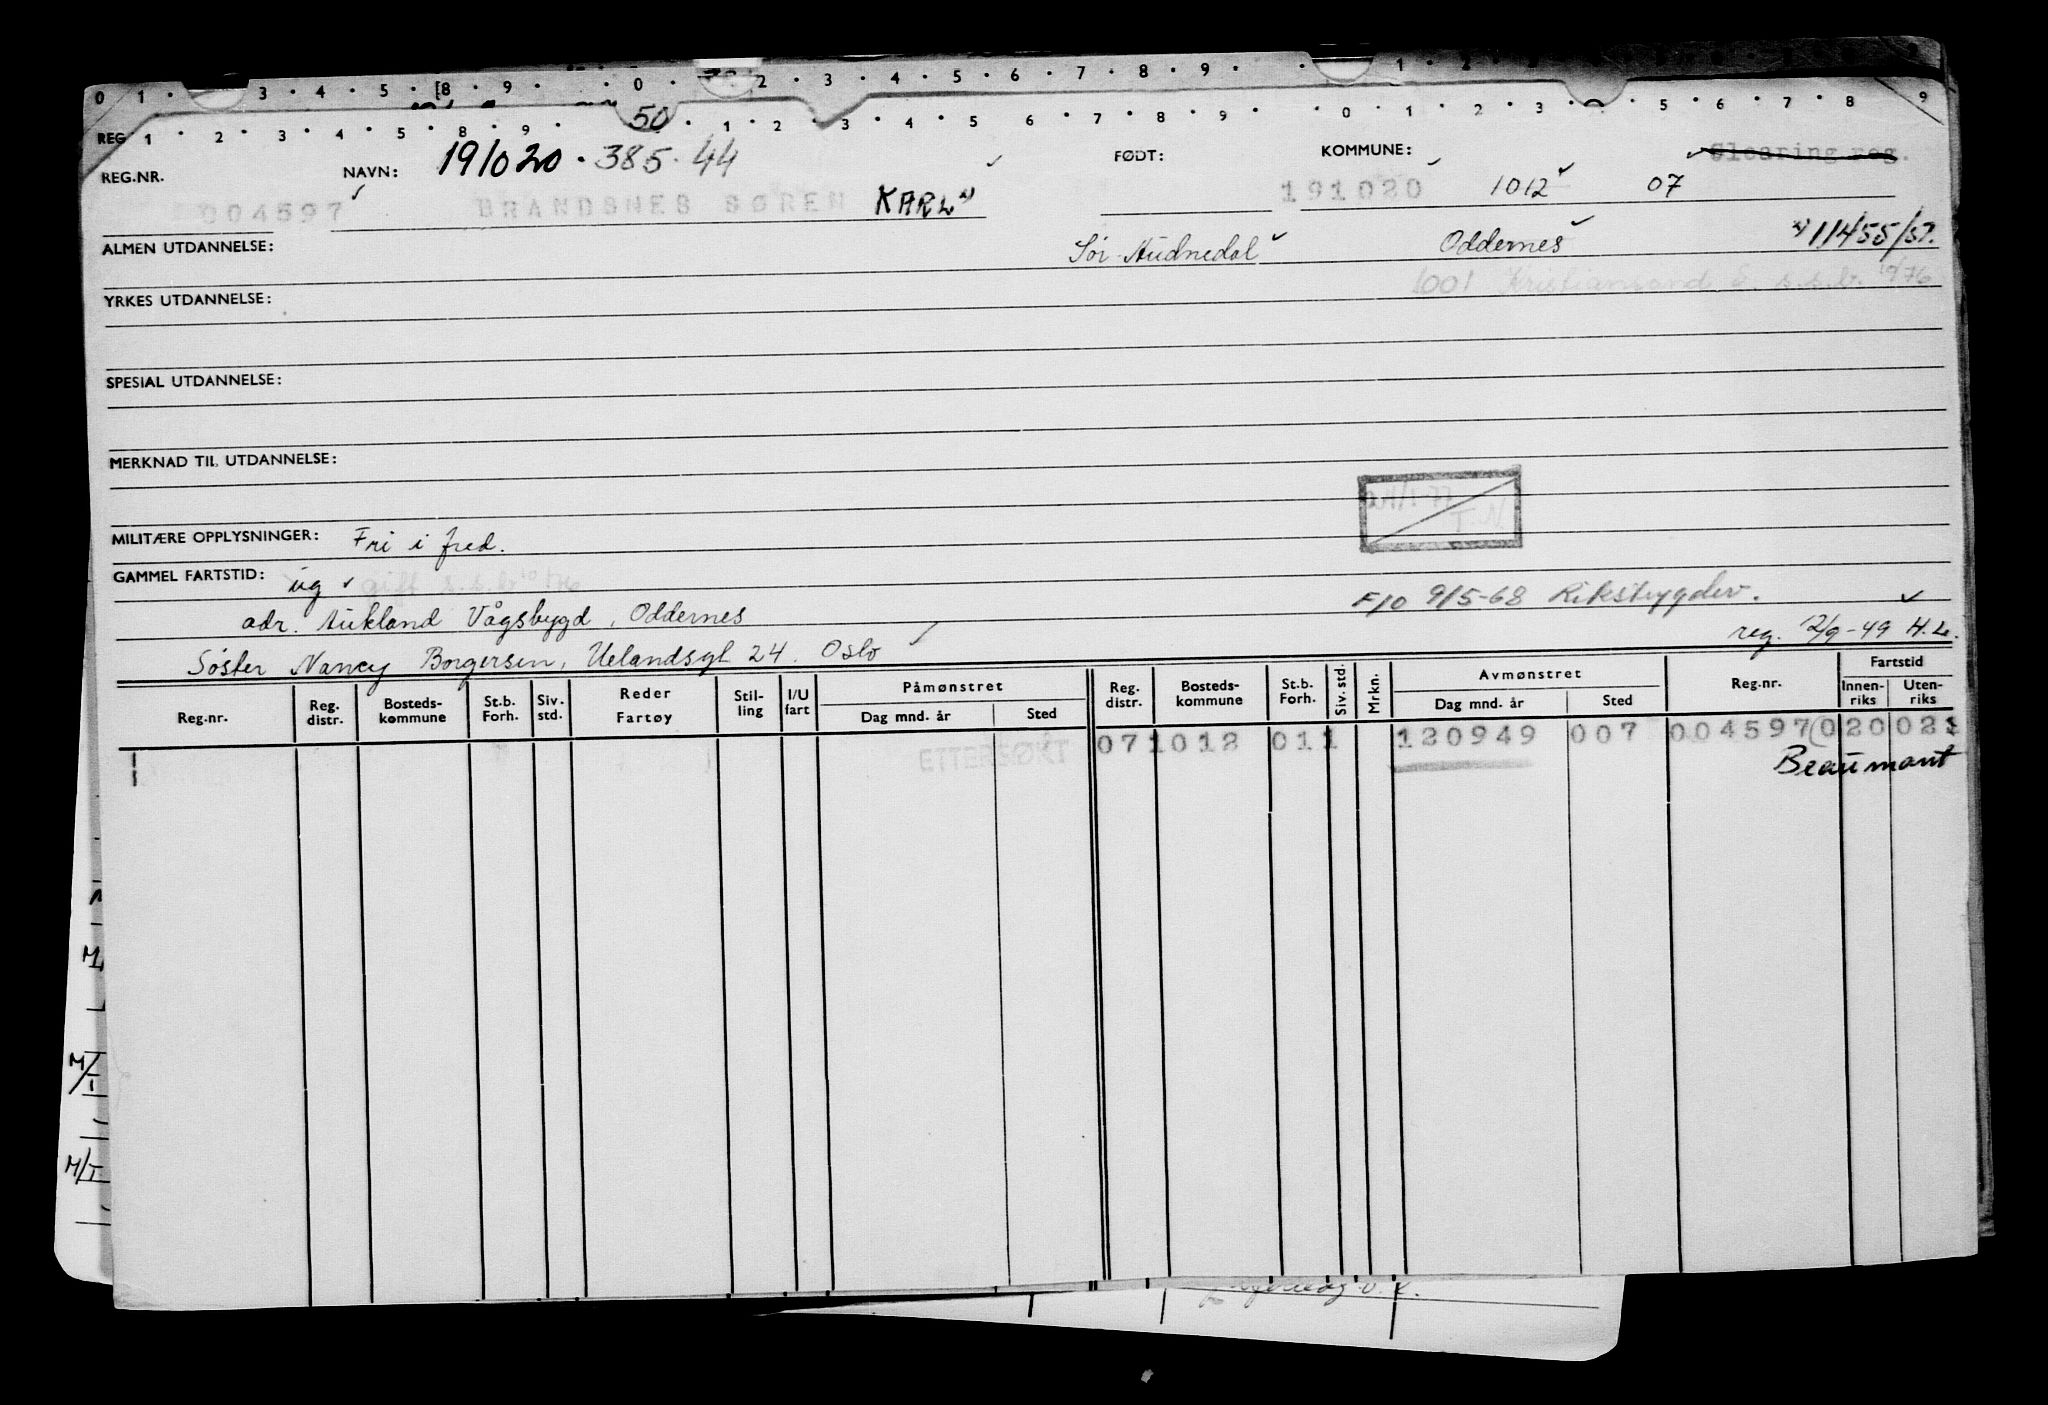 0 1 · 3 · 4 · 5 · 8 · 9 · 0 · 2 · 3 · 4 · 5 · 6 · 7 · 8 · 9 · 1 · 2
REG 1 · 2 · 3 · 4 · 5 · 8 · 9 · 50 · 1 · 2 · 3 · 4 · 5 6 · 7 · 8 · 9 · 0 · 1 2 · 3 · 5 · 6 · 7 · 8 9
REG.NR. NAVN: 191020 · 385 · 44 FØDT: KOMMUNE: Clearing reg.
004597 BRANDSNES SØREN KARL x) 191020 1012 07
ALMEN UTDANNELSE: Sør-Audnedal Oddernes x) 11455/57.
YRKES UTDANNELSE: 1001 Kristiansand S. s.s.br. 10/76
SPESIAL UTDANNELSE:
MERKNAD TIL UTDANNELSE:
MILITÆRE OPPLYSNINGER: Fri i fred. T.N
GAMMEL FARTSTID: ug gift s.s.br 10/76
F/O 9/5-68 Rikstrygdev.
adr. Aukland Vågsbygd, Oddernes
reg. 12/9-49 H.L.
Søster Nancy Borgersen, Uelandsgt 24. Oslo
Reg.nr. Reg. distr. Bosteds-kommune St.b. Forh. Siv. std. Reder Fartøy Stil-ling I/U fart Påmønstret Dag mnd. år Sted Reg. distr. Bosteds-kommune St.b. Forh. Siv. std. Mrkn. Avmønstret Dag mnd. år Sted Reg.nr. Fartstid Innen-riks Uten-riks
ETTERSØKT 07 1012 011 1 120949 007 004597 020 021
Beaumont
M/T
M/T